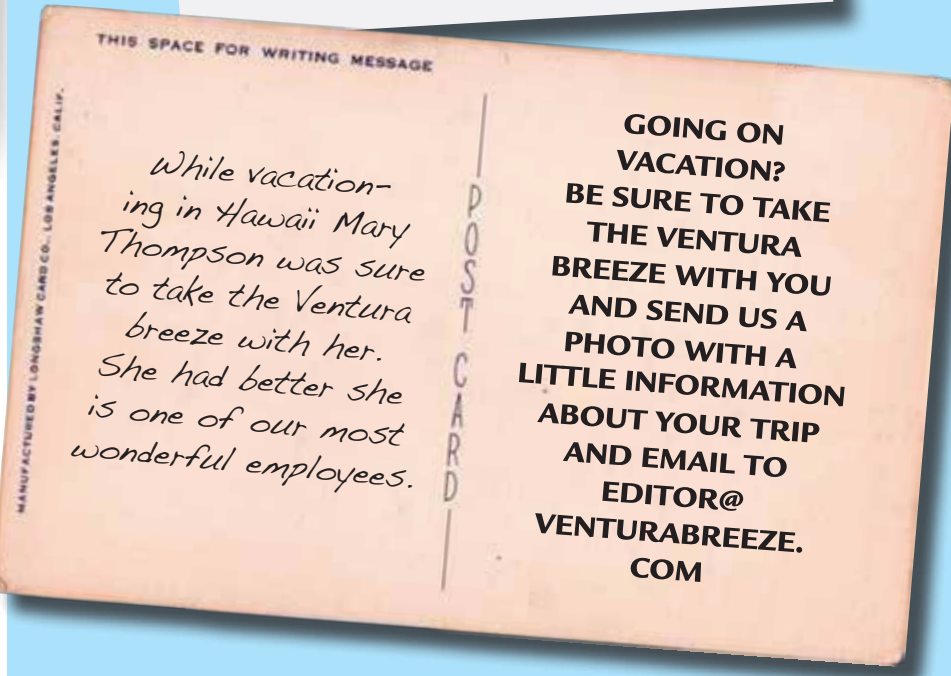 THIS SPACE FOR WRITING MESSAGE
MANUFACTURED BY LONGSHAW CARD CO., LOS ANGELES, CALIF.
While vacation-
ing in Hawaii Mary
Thompson was sure
to take the Ventura
breeze with her.
She had better she
is one of our most
wonderful employees.
POST CARD
GOING ON
VACATION?
BE SURE TO TAKE
THE VENTURA
BREEZE WITH YOU
AND SEND US A
PHOTO WITH A
LITTLE INFORMATION
ABOUT YOUR TRIP
AND EMAIL TO
EDITOR@
VENTURABREEZE.
COM